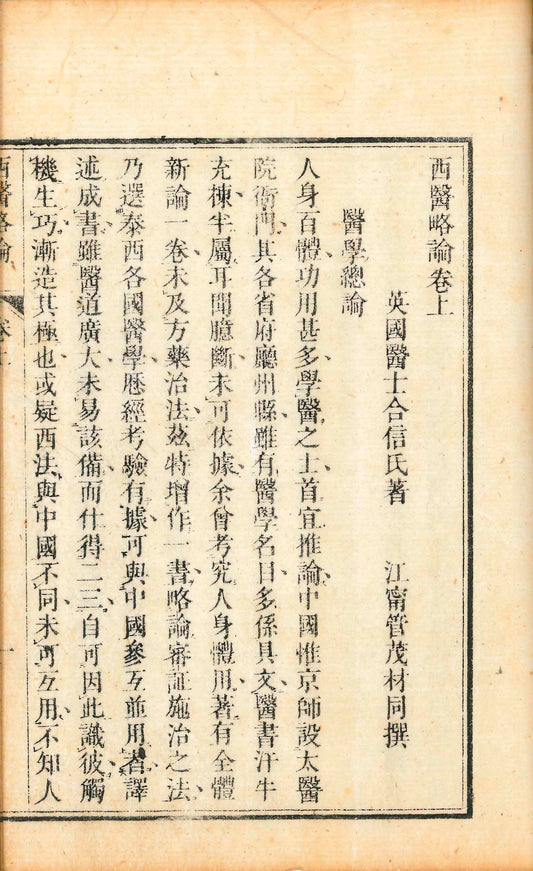 西醫略論卷上
英國醫士合信氏著　江甯管茂材同撰
醫學總論
人身百體、功用甚多、學醫之士首宜推論、中國惟京師設太醫
院衙門、其各省府廳州縣、雖有醫學名目、多係具文、醫書汗牛
充棟、半屬耳聞臆斷、未可依據、余曾考究人身體用、著有全體
新論一卷、未及方藥治法、玆特增作一書、略論審証施治之法、
乃選泰西各國醫學、歷經考驗有據、可與中國參互並用者、譯
述成書、雖醫道廣大、未易該備、而什得二三、自可因此識彼、觸
機生巧、漸造其極也、或疑西法與中國不同、未可互用、不知人
西醫略論　卷上　一